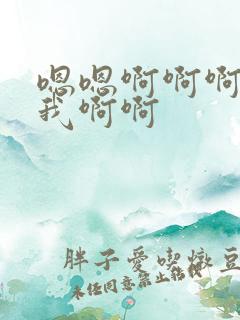 嗯嗯啊啊啊
我啊啊
胖子愛喫燉豆
未经同意禁止转载